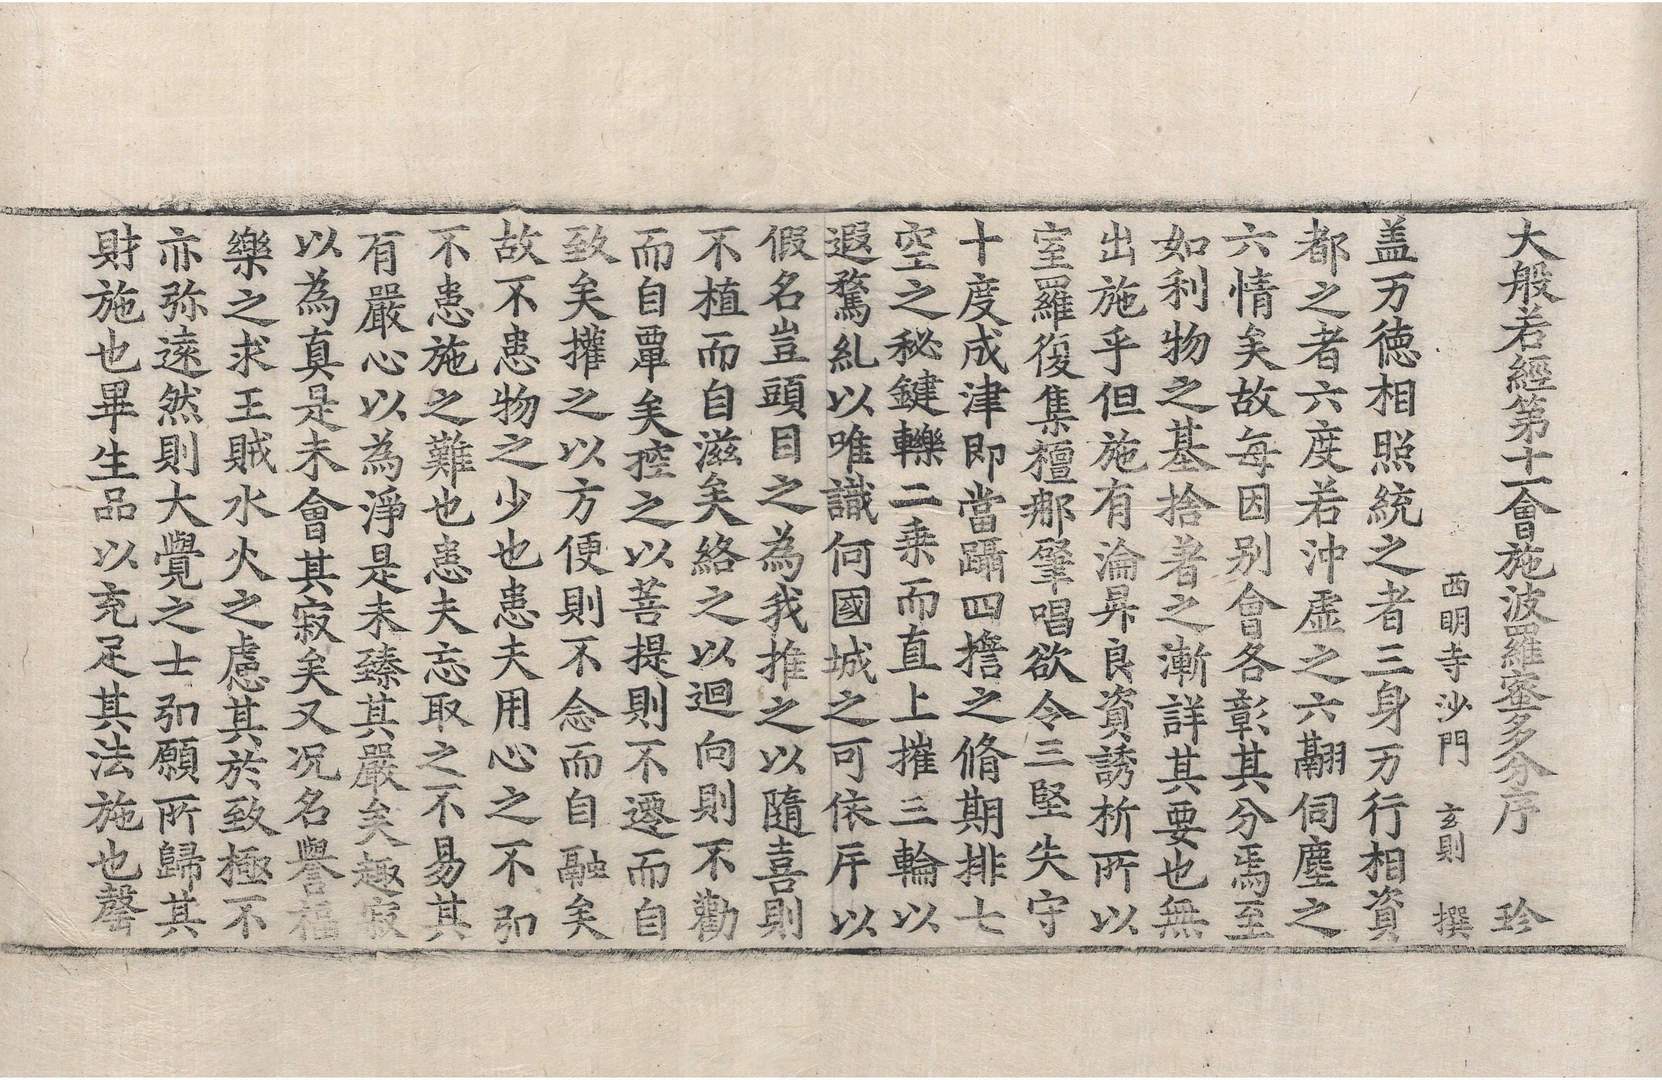 大般若經第十一會施波羅蜜多分序 珍
西明寺沙門 玄則 撰
盖万德相照統之者三身万行相資
都之者六度若沖虛之六翮伺塵之
六情矣故每因别會各彰其分焉至
如利物之基捨著之漸詳其要也無
出施乎但施有淪昇良資誘析所以
室羅復集檀那肇唱欲令三堅失守
十度成津即當躡四擔之脩期排七
空之秘鍵轢二乗而直上摧三輪以
遐騖乱以唯識何國城之可依斥以
假名豈頭目之為我推之以隨喜則
不植而自滋矣絡之以迴向則不勸
而自覃矣控之以菩提則不遷而自
致矣攉之以方便則不念而自融矣
故不患物之少也患夫用心之不弘
不患施之難也患夫忘取之不易其
有嚴心以為淨是未臻其嚴矣趣寂
以為真是未會其寂矣又况名譽福
樂之求王賊水火之慮其於致極不
亦弥遠然則大覺之士弘願所歸其
財施也畢生品以充足其法施也罄